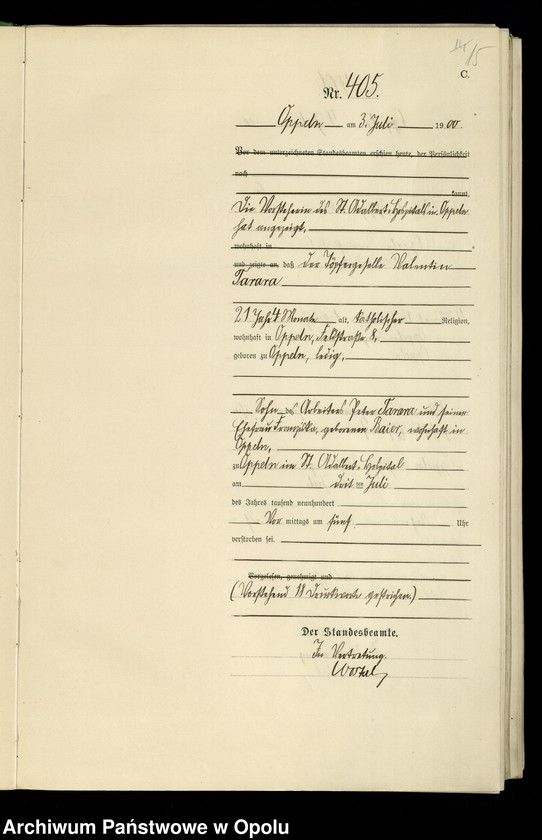 15
C.
Nr. 405.
Oppeln am 3. Juli 1900.
Vor dem unterzeichneten Standesbeamten erschien heute, der Persönlichkeit
nach
kannt,
Die Vorsteherin des St. Adalbert-Hospitals in Oppeln
hat angezeigt,
wohnhaft in
und zeigte an, daß der Töpfergeselle Valentin
Tarara
21 Jahr 4 Monate alt, katholischer Religion,
wohnhaft in Oppeln, Feldstraße 8,
geboren zu Oppeln, ledig,
Sohn des Arbeiters Peter Tarara und seiner
Ehefrau Franziska, geborenen Baier, wohnhaft in
Oppeln,
zu Oppeln im St. Adalbert-Hospital
am drit ten Juli
des Jahres tausend neunhundert
Vor mittags um fünf Uhr
verstorben sei.
Vorgelesen, genehmigt und
(Vorstehend Druckworte gestrichen.)
Der Standesbeamte.
In Vertretung.
Wostal
Archiwum Państwowe w Opolu